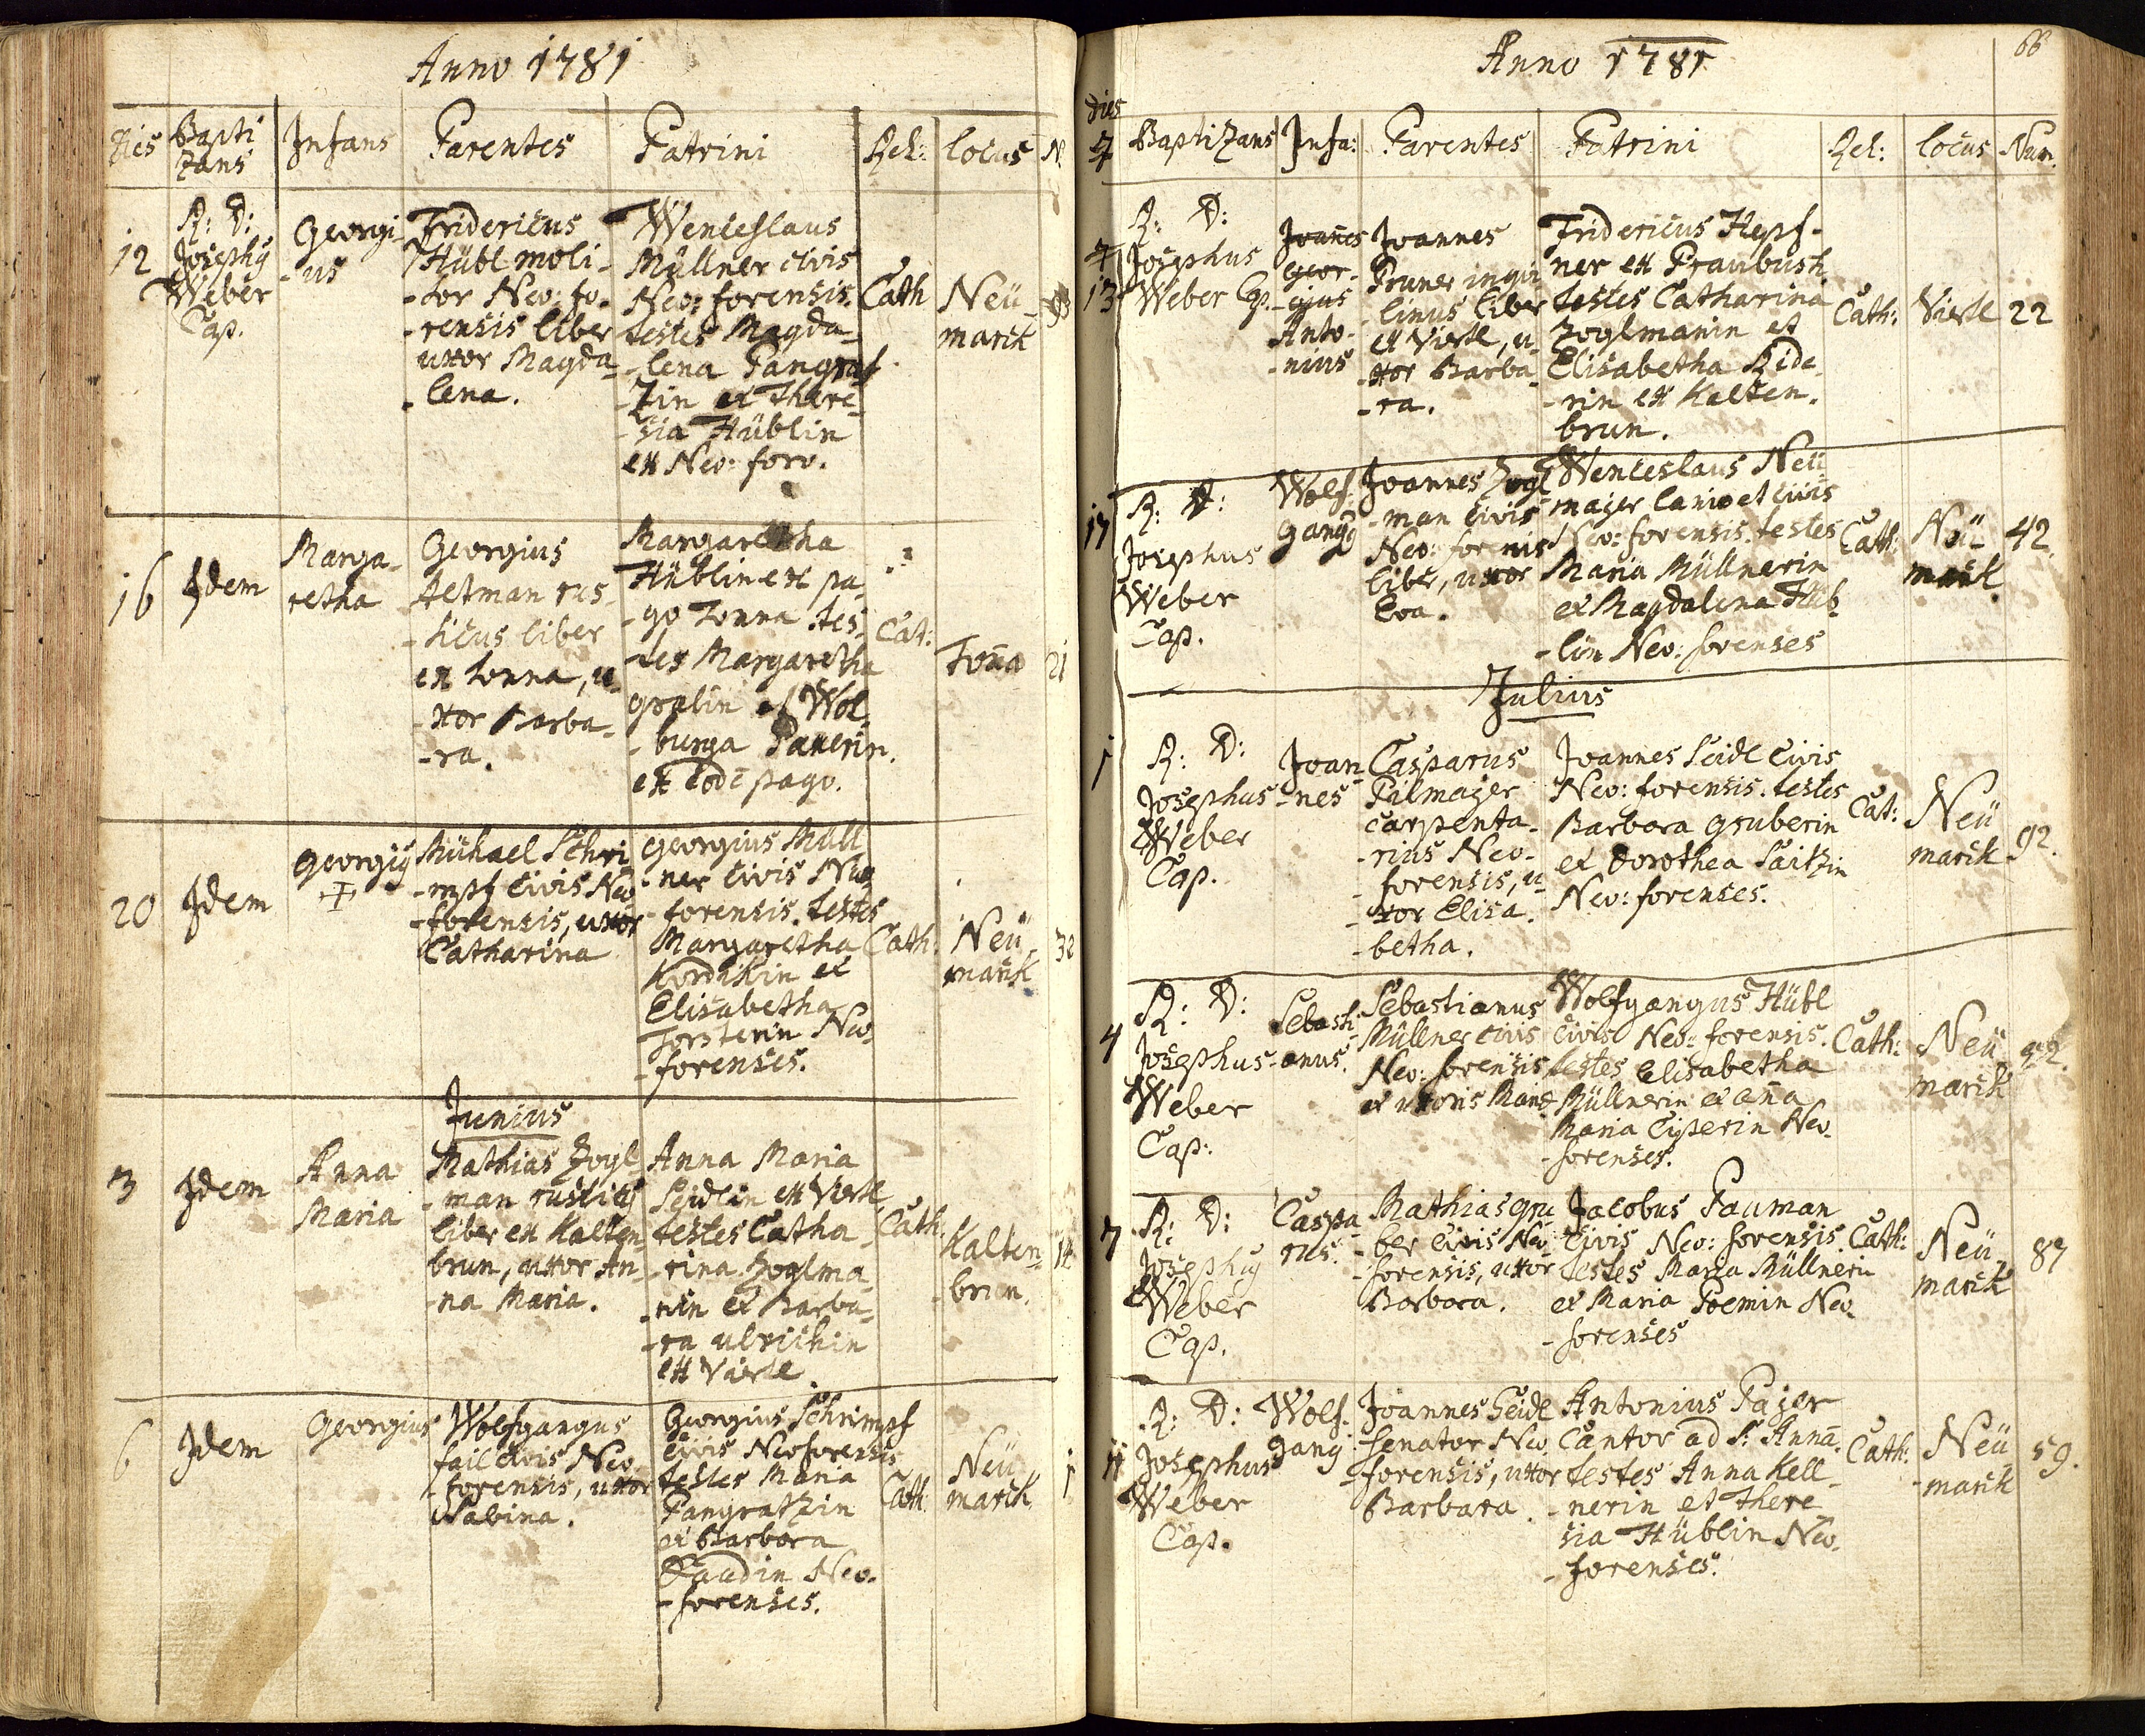 Anno 1781
Dies Bapti Infans Parentes Patrini Rel: locus N.
zans
12
R: D:
Josephg
Weber
Cap.
Georgi-
-us
Fridericus
Hübl moli-
-tor Neo: fo-
-rensis liber
uxor Magda-
-lena.
Wenceslaus
Müllner civis
Neo: forensis.
testes Magda-
-lena Pangraf
-zin et There-
-sia Hüblin
ex Neo: foro.
Cath
Neü-
marck
16
Idem
Marga-
retha
Georgius
Altman rus-
-ticus liber
ex tonna, u-
-xor Barba-
-ra.
Margaretha
Hüblin ex pa-
-go Tonna tes-
-tes Margaretha
et Wol-
-burga Pauerin.
ex eode pago.
Cat:
Tona
21
20
Idem
Georgig
Michael Schri
-mpf civis Neo
-forensis, uxor
Catharina
Georgius Mull
-ner civis Neo
-forensis. testes
Margaretha
Kordikin et
Elisabetha
Forsterin Neo-
-forenses.
Cath:
Neü-
marck
32
Junius
3
Idem
Anna
Maria
Mathias Zogl-
-man rusticg
liber ex Kalten-
brun, uxor An-
-na Maria.
Anna Maria
Seidlin ex Viertl
testes Catha-
-rina Zoglma-
-nin et Barba-
-ra ulrichin
ex Viertl.
Cath.
Kalten-
-brun.
14
6
Idem
Georgius
Wolfgangus
fail civis Neo
-forensis, uxor
Sabina.
Georgius Schrimpf
civis Neoforensis
testes Maria
Pangratzin
et Barbara
Neo-
-forenses.
Cath:
Neü
marck
1
Anno 1781
66
dies
Baptizans Infa: Parentes Patrini Rel: locus Num.
13
R: D:
Josephus
Weber Cp.
Joannes
Geor-
-gius
Anto-
-nius
Joannes
Pruner inqui
-linus liber
ex Viertl, u-
-xor Barba-
-ra.
Fridericus Hepf-
ner ex Fraubush
testes Catharina
Zoglmanin et
Elisabetha Ride-
-rin ex Kalten-
brun.
Cath:
Viertl
22
17
R: D:
Josephus
Weber
Cap.
Wolf-
gangg
Joannes Zogl
-man civis
Neo: forenis
liber, uxor
Eva.
Wenceslaus Neü
majer lanio et civis
Neo: forensis. testes
Maria Müllnerin
et Magdalena Hüb-
-lin Neo: forenses
Cath:
Neü-
marck.
42.
Julius
1
R: D:
Josephus
Weber
Cap.
Joan
-nes
Casparus
Pilmajer
carpenta-
-rius Neo-
-forensis, u-
-xor Elisa-
-betha.
Joannes Seidl civis
Neo: forensis. testes
Barbara Gruberin
et Dorothea Saitzin
Neo: forenses.
Cat:
Neü
marck
92.
4
R: D:
Josephus
Weber
Cap:
Sebasti-
-anus.
Sebastianus
Müllner civis
Neo: forensis
et uxoris
Wolfgangus Hübl
civis Neo: forensis.
testes Elisabetha
Müllnerin et ana
Maria Neo-
-forenses.
Cath:
Neü-
marck
7
R: D:
Josephg
Weber
Cap.
Caspa
rus.
Mathias Gru
-ber civis Neo-
-forensis, uxor
Barbara.
Jacobus Pauman
civis Neo: forensis.
testes Maria Müllnerin
et Maria Poemin Neo-
-forenses
Cath:
Neü-
marck
87
11
R: D:
Josephus
Weber
Cap.
Wolf-
gang
Joannes Seidl
senator Neo-
-forensis, uxor
Barbara.
Antonius Pajer
Cantor ad S: Anna.
testes Anna Kell-
-nerin et There-
sia Hüblin Neo-
-forenses.
Cath:
Neü
-marck
59.